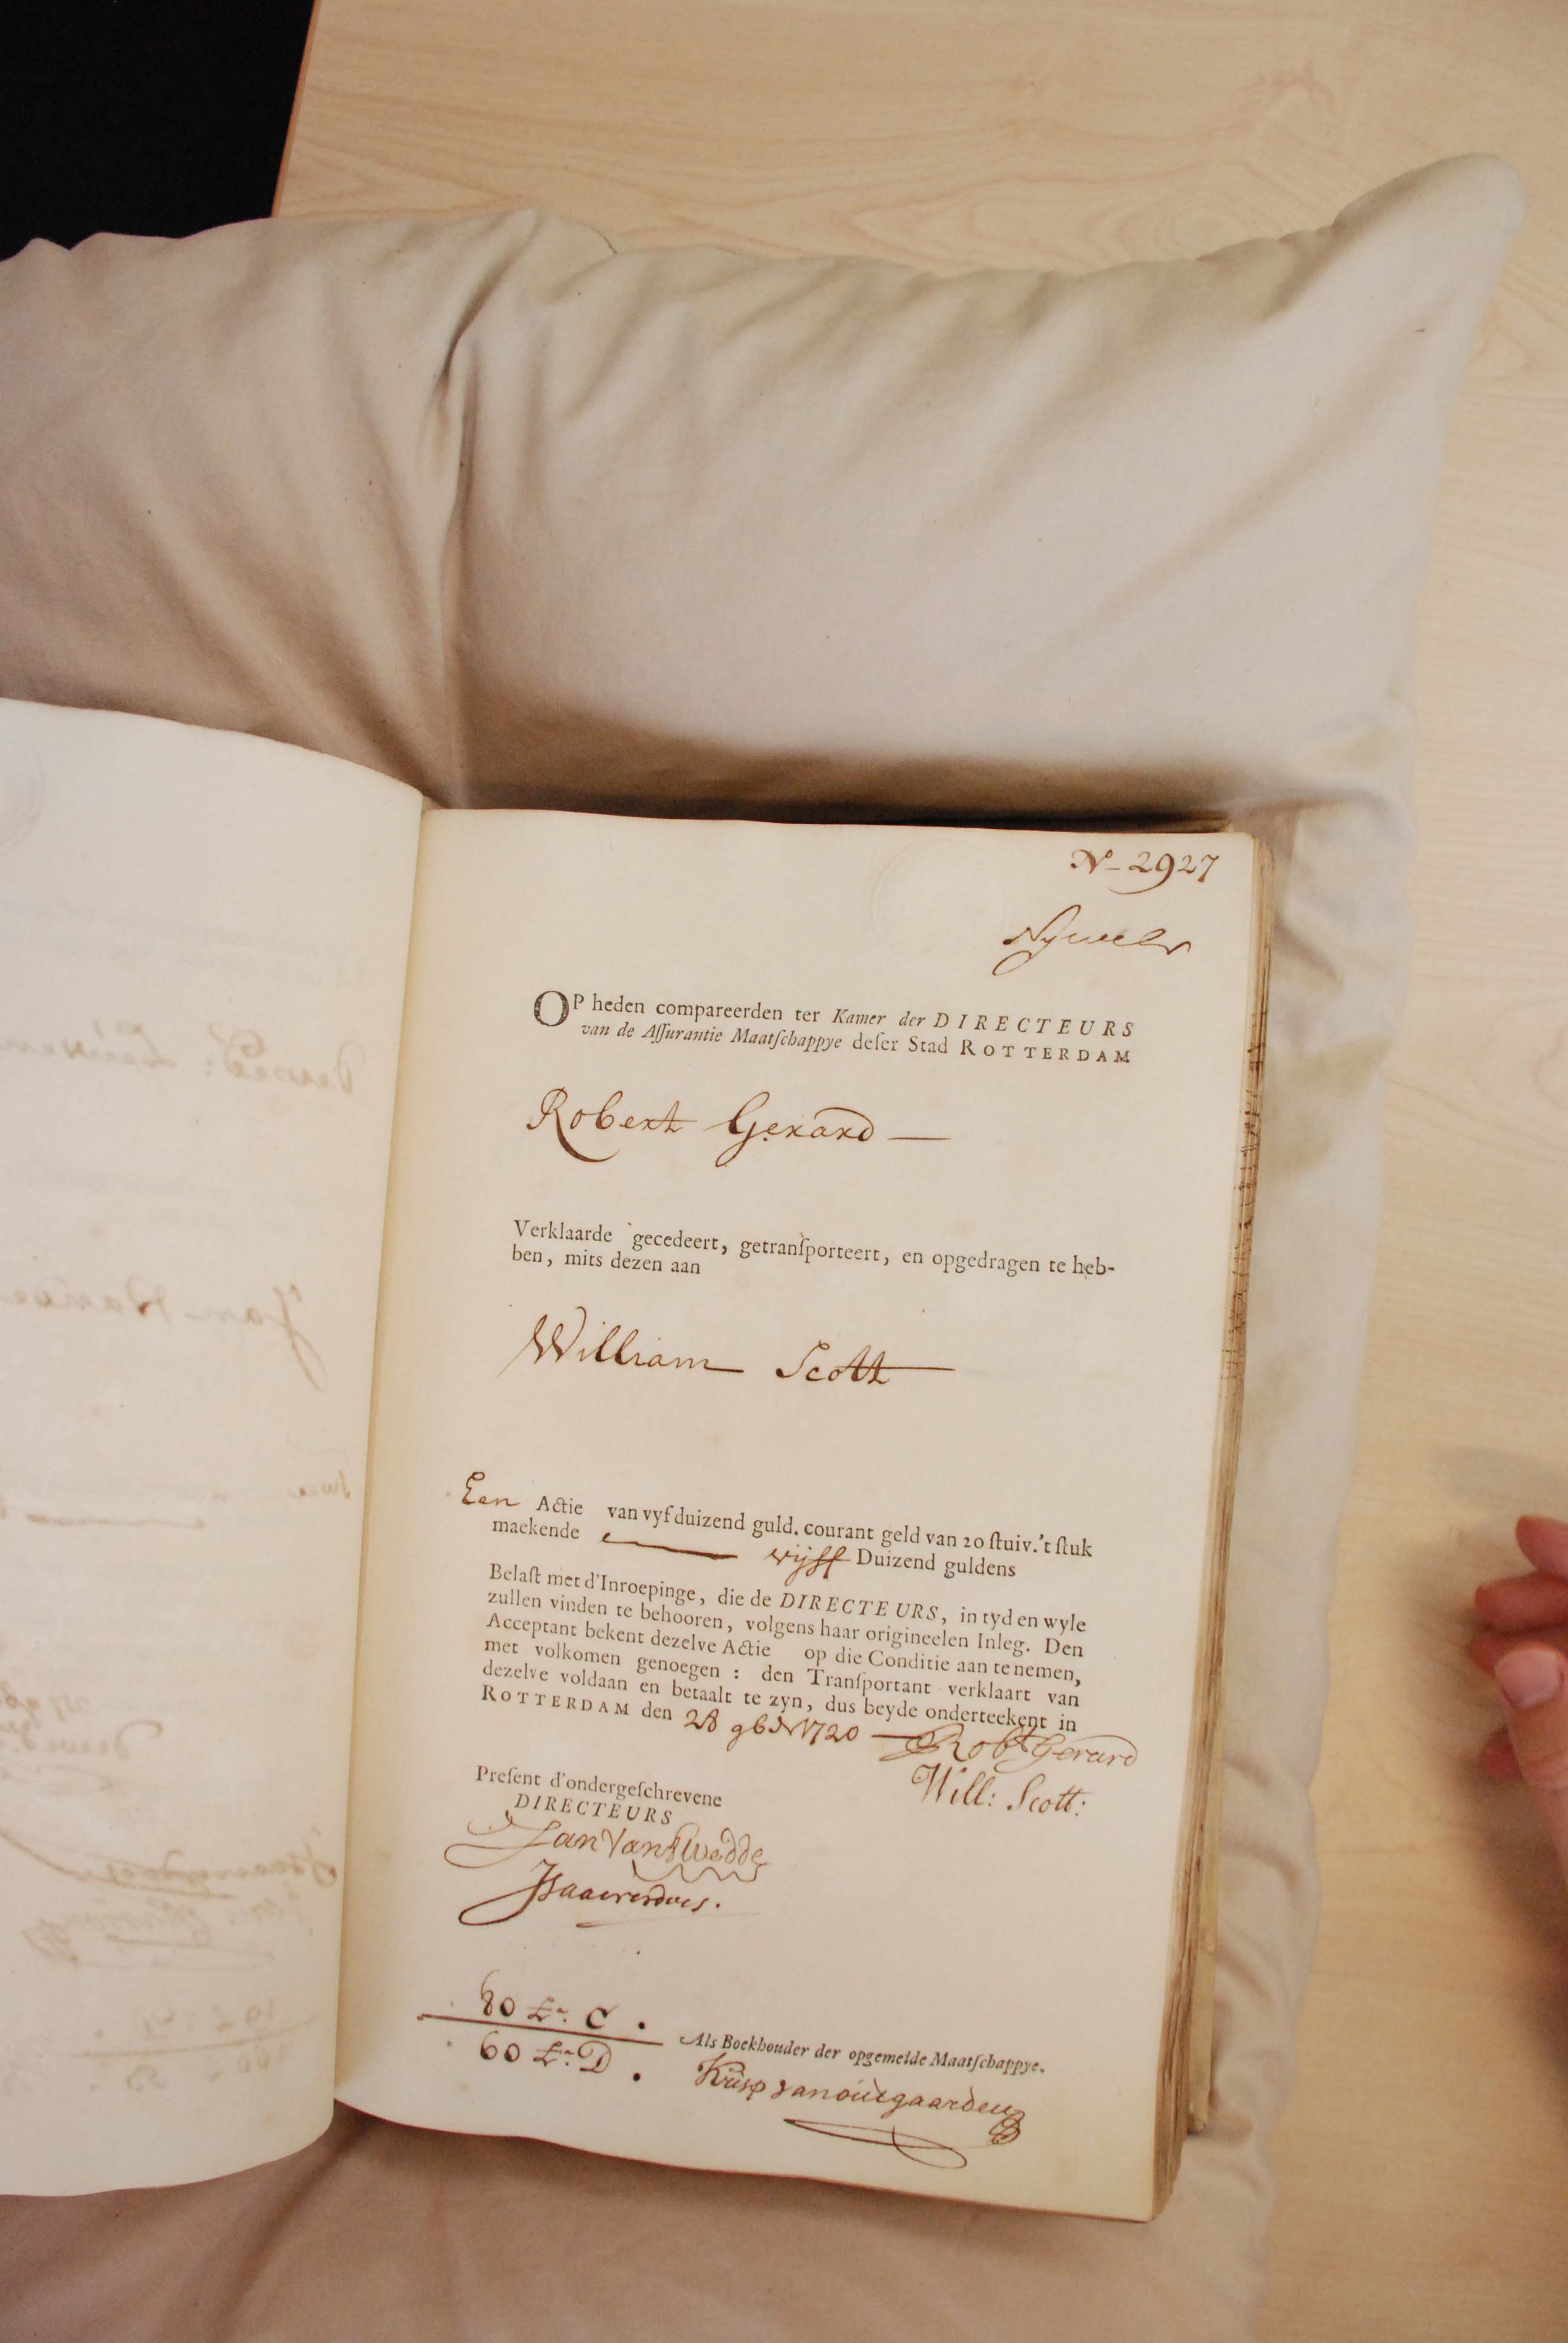 N- 2927
OP heden compareerden ter Kamer der DIRECTEURS
van de Aſſurantie Maatſchappye deſer Stad ROTTERDAM
Robert Gerard —
Verklaarde gecedeert, getranſporteert, en opgedragen te heb-
ben, mits dezen aan
William Scott
Een Actie van vyf duizend guld. courant geld van 20 ſtuiv. 't ſtuk
maekende — vijff Duizend guldens
Belaſt met d'Inroepinge, die de DIRECTEURS, in tyd en wyle
zullen vinden te behooren, volgens haar origineelen Inleg. Den
Acceptant bekent dezelve Actie op die Conditie aan te nemen,
met volkomen genoegen : den Tranſportant verklaart van
dezelve voldaan en betaalt te zyn, dus beyde onderteekent in
ROTTERDAM den 28 9br 1720 — Robt Gerard
Will: Scott:
Preſent d'ondergeſchrevene
DIRECTEURS
Jan Van Twedde
80 Lr. C .
60 Lr. D .
Als Boekhouder der opgemelde Maatſchappye.